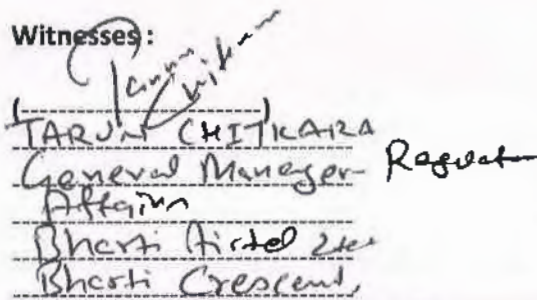 Witnesses :
Tarun Chitkara
TARUN CHITKARA
General Manager Regulatory
Affairs
Bharti Airtel Ltd
Bharti Crescent,